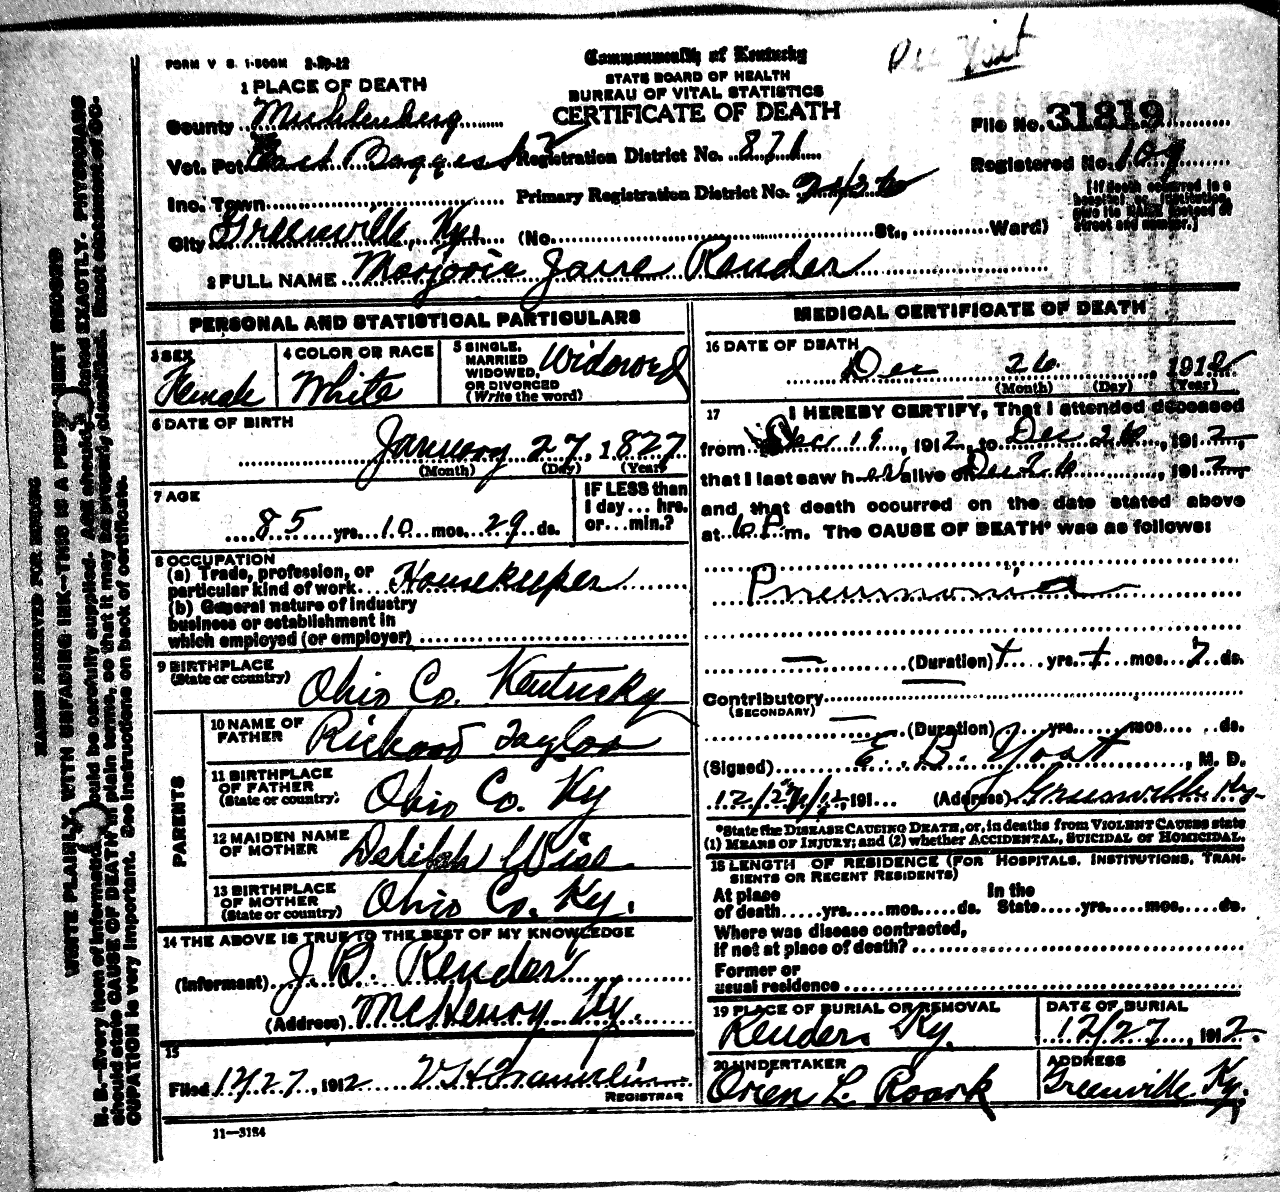 FORM V. S. 1-500M 2-29-12
Commonwealth of Kentucky
STATE BOARD OF HEALTH
BUREAU OF VITAL STATISTICS
CERTIFICATE OF DEATH
File No. 31819
Registered No. 109
[If death occurred in a hospital or institution, give its NAME instead of street and number.]
1 PLACE OF DEATH
County Muhlenberg
Vot. Pct East #2
Registration District No. 871
Inc. Town
Primary Registration District No.
City Greenville, Ky. (No. St., Ward)
2 FULL NAME Marjorie Jane Render
PERSONAL AND STATISTICAL PARTICULARS
3 SEX Female
4 COLOR OR RACE White
5 SINGLE, MARRIED WIDOWED, OR DIVORCED (Write the word) Widowed
6 DATE OF BIRTH
January 27, 1827
(Month) (Day) (Year)
7 AGE
85 yrs. 10 mos. 29 ds.
IF LESS than 1 day... hrs. or...min.?
8 OCCUPATION
(a) Trade, profession, or particular kind of work Housekeeper
(b) General nature of industry business or establishment in which employed (or employer)
9 BIRTHPLACE
(State or country) Ohio Co. Kentucky
PARENTS
10 NAME OF FATHER Richard Taylor
11 BIRTHPLACE OF FATHER (State or country) Ohio Co. Ky
12 MAIDEN NAME OF MOTHER Delilah Wise
13 BIRTHPLACE OF MOTHER (State or country) Ohio Co. Ky.
14 THE ABOVE IS TRUE TO THE BEST OF MY KNOWLEDGE
(Informant) J. B. Render
(Address) McHenry Ky.
15
Filed 12/27, 1912
REGISTRAR
11—3184
MEDICAL CERTIFICATE OF DEATH
16 DATE OF DEATH
Dec 26, 1912
(Month) (Day) (Year)
17 I HEREBY CERTIFY, That I attended deceased
from Dec 19, 1912, to Dec 26, 1912,
that I last saw her alive on Dec 26, 1912,
and that death occurred on the date stated above
at 6 P.m. The CAUSE OF DEATH* was as follows:
Pneumonia
(Duration) yrs. mos. 7 ds.
Contributory
(SECONDARY)
(Duration) yrs. mos. ds.
(Signed) E. B. Yost, M. D.
191 (Address) Greenville Ky.
*State the DISEASE CAUSING DEATH, or, in deaths from VIOLENT CAUSES state
(1) MEANS OF INJURY; and (2) whether ACCIDENTAL, SUICIDAL or HOMICIDAL.
18 LENGTH OF RESIDENCE (FOR HOSPITALS, INSTITUTIONS, TRANSIENTS OR RECENT RESIDENTS)
At place of death yrs. mos. ds. In the State yrs. mos. ds.
Where was disease contracted,
if not at place of death?
Former or
usual residence
19 PLACE OF BURIAL OR REMOVAL
Render Ky.
DATE OF BURIAL
12/27, 1912.
20 UNDERTAKER
Orien L. Roark
ADDRESS
Greenville Ky.
MARGIN RESERVED FOR BINDING
WRITE PLAINLY, WITH UNFADING INK—THIS IS A PERMANENT RECORD
N. B.—Every item of information should be carefully supplied. AGE should be stated EXACTLY. PHYSICIANS
should state CAUSE OF DEATH in plain terms, so that it may be properly classified. Exact statement of OC-
CUPATION is very important. See instructions on back of certificate.